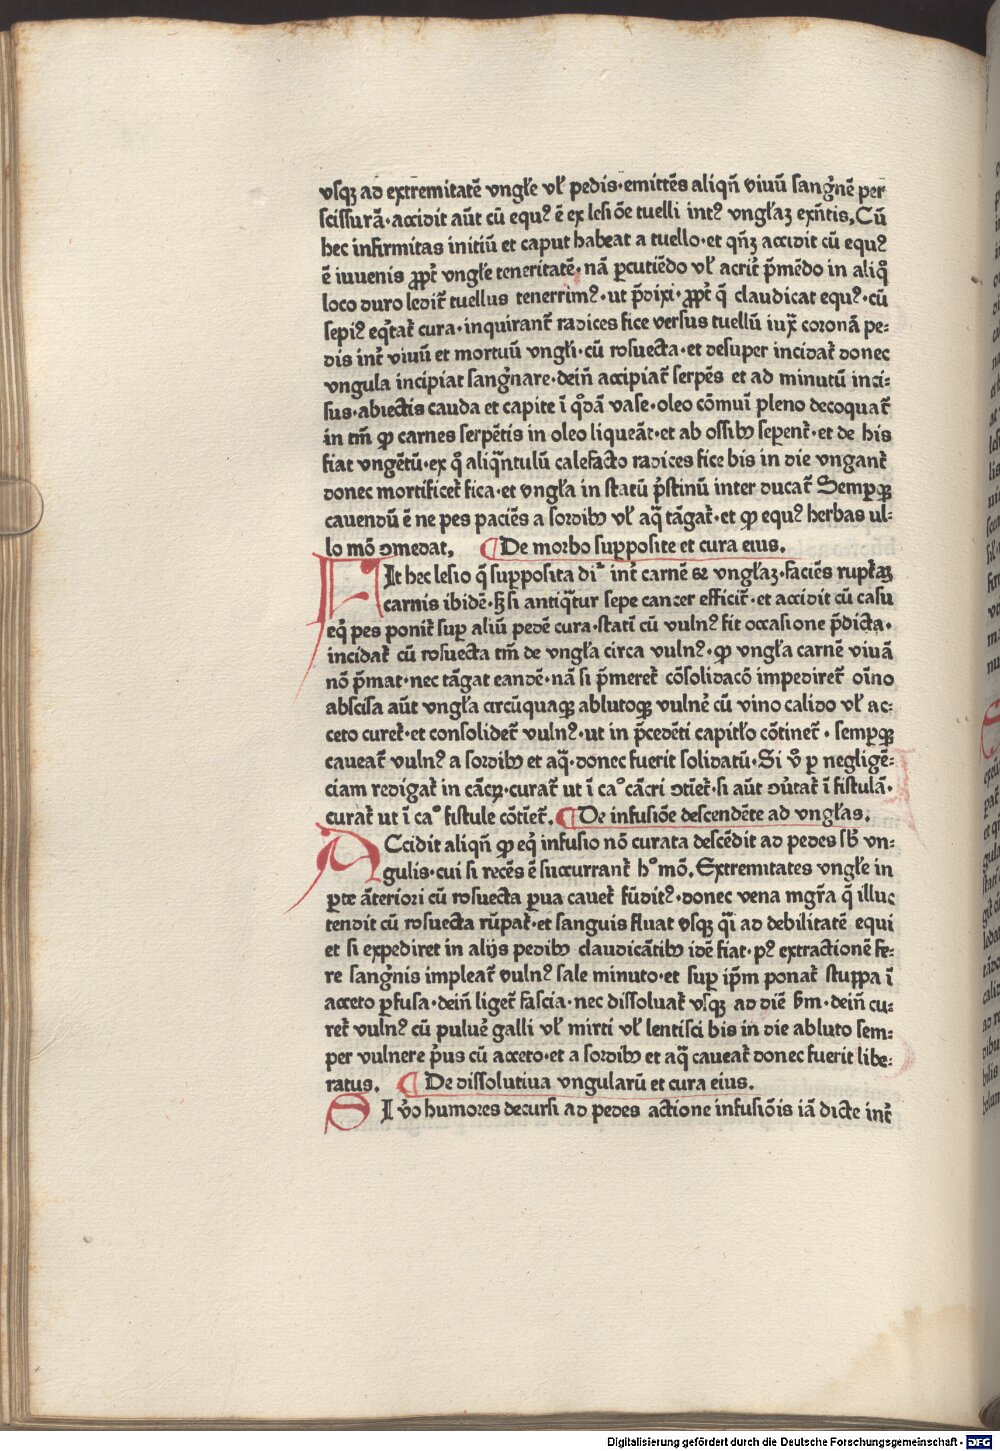 vsq̃ ad extremitatē vngl̄e vl̄ pedis·emittēs aliqñ viuū sang̉nē per
scissurā·accidit aūt cū equꝰ ē ex lesiōe tuelli intꝰ vngl̄aʒ exñtis, Cū
hec infirmitas initiū et caput habeat a tuello·et qñʒ accidit cū equꝰ
ē iuuenis ꝓpt̉ vngl̄e teneritatē·nā ꝑcutiēdo vl̄ acrit̉ p̄mēdo in aliq̊
loco duro ledit̉ tuellus tenerrimꝰ·ut p̄dixi·ꝓpt̉ q̄ claudicat equꝰ·cū
sepiꝰ eq̉tat̉ cura·inquirant̉ radices fice versus tuellū iux̄ coronā pe⸗
dis int̉ viuū et mortuū vngl̄i·cū rosuecta·et desuper incidat̉ donec
vngula incipiat sang̉nare·deiñ accipiat̉ serpēs et ad minutū inci⸗
sus·abiectis cauda et capite ī q̊dā vase·oleo cōmuī pleno decoquat̉
in tm̄ ꝙ carnes serpētis in oleo liqueāt·et ab ossibꝫ seꝑent̉·et de his
fiat vngētū·ex q̊ aliq̄ntulū calefacto radices fice bis in die vngant̉
donec mortificet̉ fica·et vngl̄a in statū p̉stinū inter ducat̉ Sempqꝫ
cauendū ē ne pes paciēs a sordibꝫ vl̄ aq̄ tāgat̉·et ꝙ equꝰ herbas ul⸗
lo mō ꝯmedat, ¶ De morbo supposite et cura eius.
FIt hec lesio q̄ supposita dr̄ int̉ carnē et vngl̄aʒ·faciēs rupt̉aʒ
carnis ibidē·ꝗ si antiq̄tur sepe cancer efficit̉·et accidit cū casu
eq̉ pes ponit̉ suꝑ aliū pedē cura·statī cū vulnꝰ fit occasione p̄dicta·
incidat̉ cū rosuecta tm̄ de vngl̄a circa vulnꝰ·ꝙ vngl̄a carnē viuā
nō p̄mat·nec tāgat eandē·nā si p̄meret̉ cōsolidacō impediret̉ oīno
abscisa aūt vngl̄a circūquaqꝫ ablutoqꝫ vulnẻ cū vino calido vl̄ ac⸗
ceto curet̉·et consolidet̉ vulnꝰ·ut in p̄cedēti capitl̄o cōtinet̉·sempqꝫ
caueat̉ vulnꝰ a sordibꝫ et aq̄·donec fuerit solidatū·Si v̊ ꝑ negligē⸗
ciam redigat̉ in cācꝝ·curat̉ ut ī caº cācri ꝯtiet̉·si aūt ꝯu̓tat̉ ī fistulā·
curat̉ ut ī caº fistule cōtiet̉. ¶ De infusiōe descendēte ad vngl̄as.
ACcidit aliqñ ꝙ eq̉ infusio nō curata descēdit ad pedes sb̄ vn⸗
gulis·cui si recēs ē succurrant̉ hº mō. Extremitates vngl̄e in
ꝑte āteriori cū rosuecta ꝑua cauet̉ fūditꝰ·donec vena mgr̄a q̄ illuc
tendit cū rosuecta rūpat̉·et sanguis fluat vsqꝫ q̄i ad debilitatē equi
et si expediret in alijs pedibꝫ claudicātibꝫ idē fiat·pꝰ extractionē fe⸗
re sang̉nis impleat̉ vulnꝰ sale minuto·et suꝑ ip̄m ponat̉ stuppa ī
acceto ꝑfusa·deiñ liget̉ fascia·nec dissoluat̉ vsqꝫ ad diē ẜm·deiñ cu⸗
ret̉ vulnꝰ cū puluẻ galli vl̄ mirti vl̄ lentisci bis in die abluto sem⸗
per vulnere p̉us cū acceto·et a sordibꝫ et aq̄ caueat̉ donec fuerit libe⸗
ratus. ¶ De dissolutiua vngularū et cura eius.
SI v̊o humores decursi ad pedes actione infusiōis iā dicte int̉
Digitalisierung gefördert durch die Deutsche Forschungsgemeinschaft - DFG